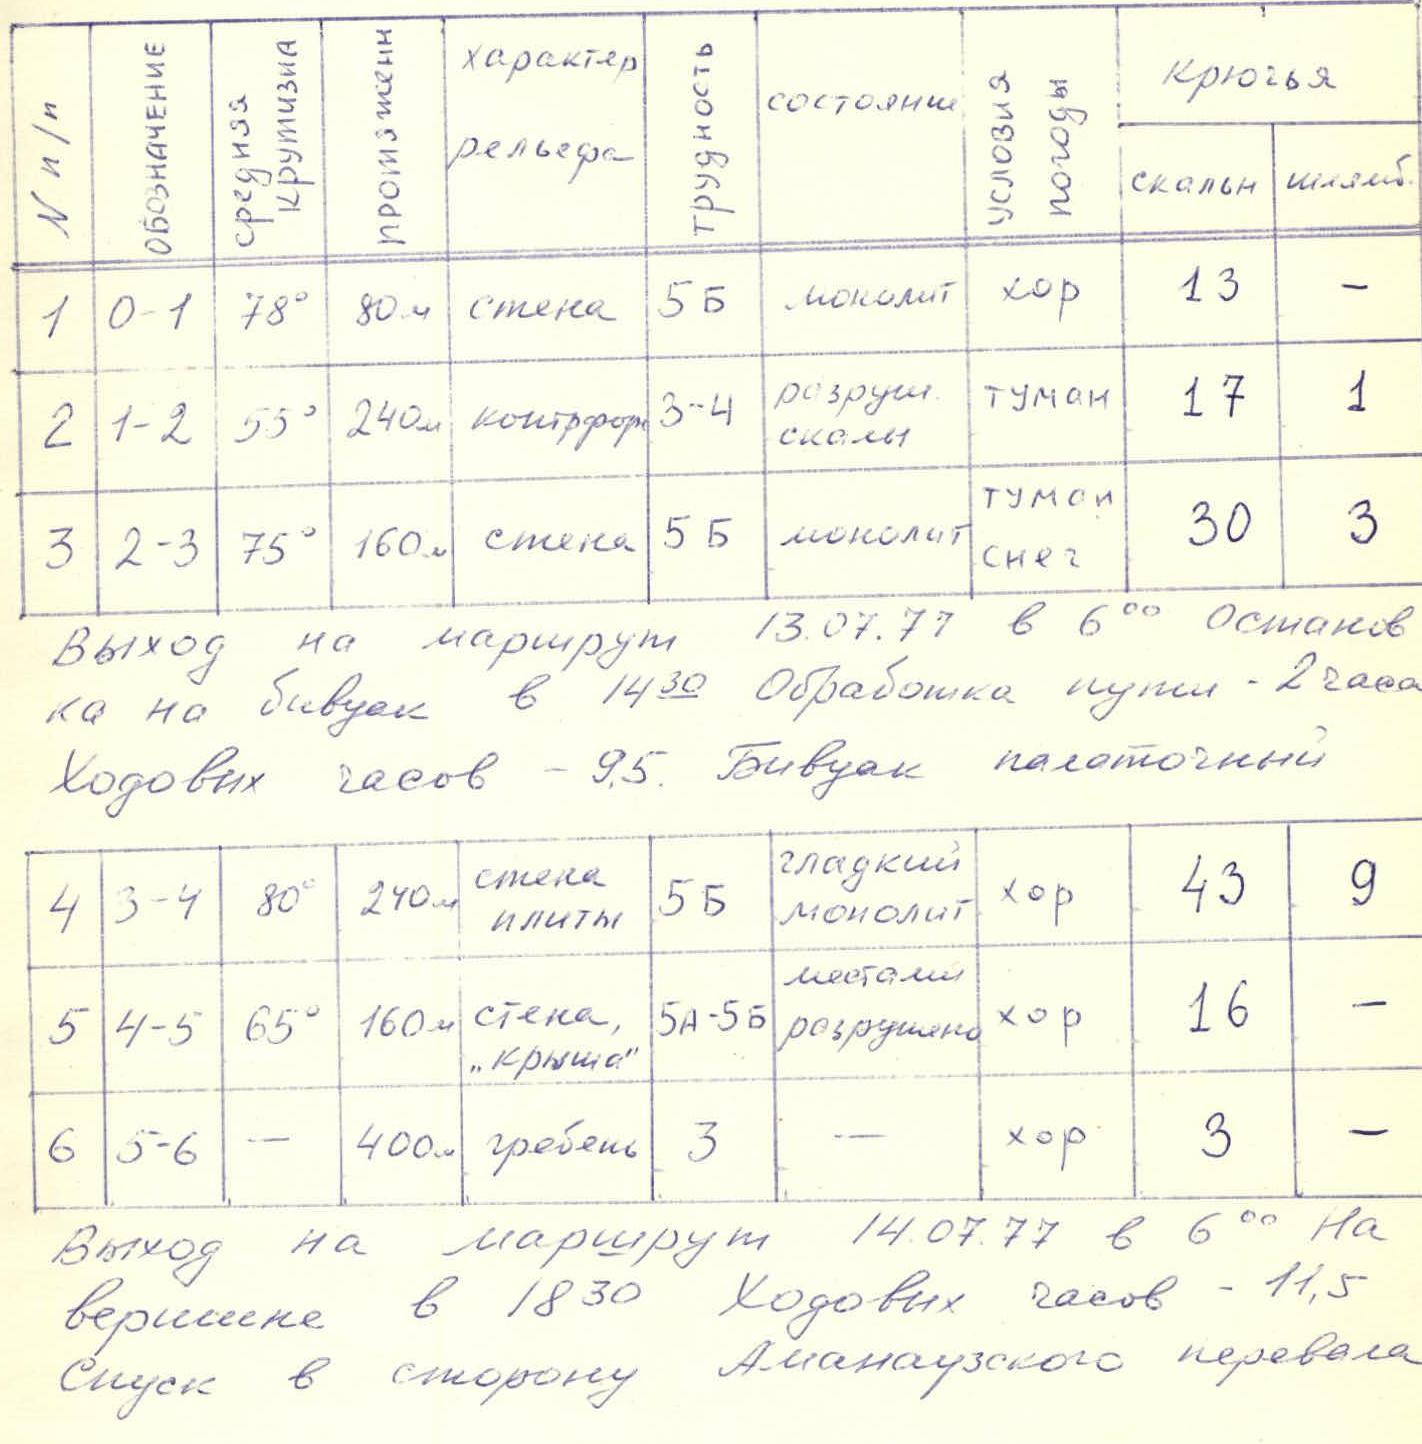 N п/п ОБОЗНАЧЕНИЕ средняя крутизна протяженн характер рельефа трудность состояние условия погоды крючья скальн шлямб.
1 0-1 78° 80м стена 5Б монолит хор 13 –
2 1-2 55° 240м контрфорс 3-4 разруш. скалы туман 17 1
3 2-3 75° 160м стена 5Б монолит туман снег 30 3
Выход на маршрут 13.07.77 в 6⁰⁰ Останов
ка на бивуак в 14³⁰ Обработка пути - 2 часа
Ходовых часов - 9,5. Бивуак палаточный
4 3-4 80° 240м стена плиты 5Б гладкий монолит хор 43 9
5 4-5 65° 160м стена, „крыша" 5А-5Б местами разрушено хор 16 –
6 5-6 — 400м гребень 3 — хор 3 –
Выход на маршрут 14.07.77 в 6⁰⁰ На
вершине в 18³⁰ Ходовых часов - 11,5
Спуск в сторону Аманаузского перевала